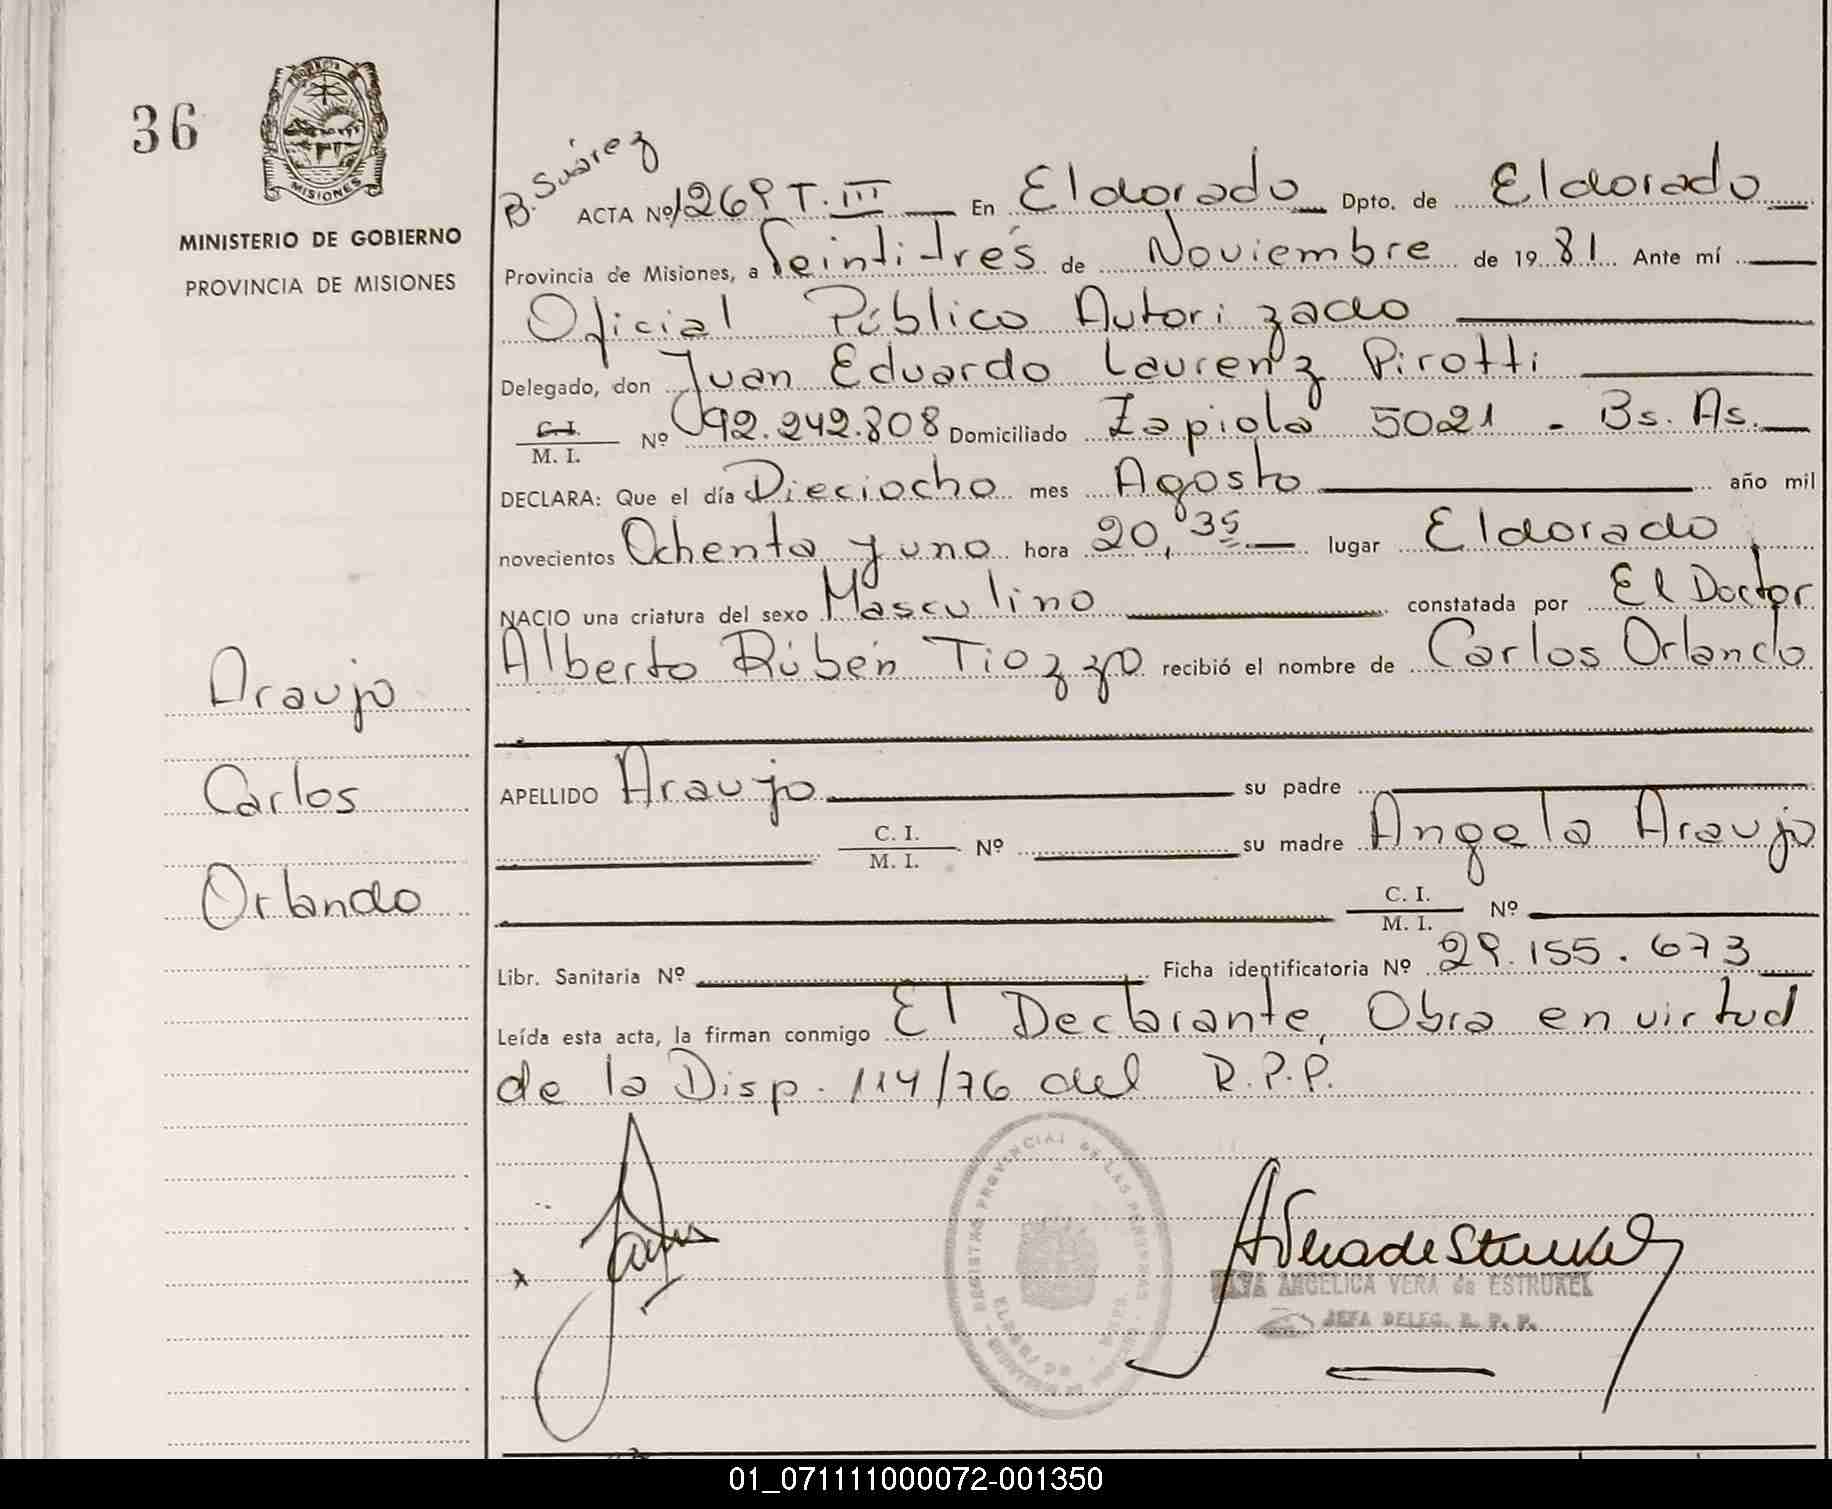 36
PROVINCIA
MISIONES
MINISTERIO DE GOBIERNO
PROVINCIA DE MISIONES
Araujo
Carlos
Orlando
B. Suárez
ACTA Nº 1269 T. III En Eldorado Dpto. de Eldorado
Provincia de Misiones, a Veintitrés de Noviembre de 19 81 Ante mí
Oficial Público Autorizado
Delegado, don Juan Eduardo Laurenz Pirotti
C. I.
M. I. Nº 92.242.808 Domiciliado Zapiola 5021 - Bs. As.
DECLARA: Que el día Dieciocho mes Agosto año mil
novecientos Ochenta y uno hora 20,35 lugar Eldorado,
NACIO una criatura del sexo Masculino constatada por El Doctor
Alberto Rúben Tiozzo recibió el nombre de Carlos Orlando
APELLIDO Araujo su padre
C. I.
M. I. Nº su madre Angela Araujo
C. I.
M. I. Nº
Libr. Sanitaria Nº Ficha identificatoria Nº 29.155.673
Leída esta acta, la firman conmigo El Declarante, Obra en virtud
de la Disp. 114/76 del R.P.P.
REGISTRO PROVINCIAL DE LAS PERSONAS
ELDORADO
x
AVeradeEstrukel
ANGELICA VERA de ESTRUKEL
JEFA DELEG. R. P. P.
01_071111000072-001350